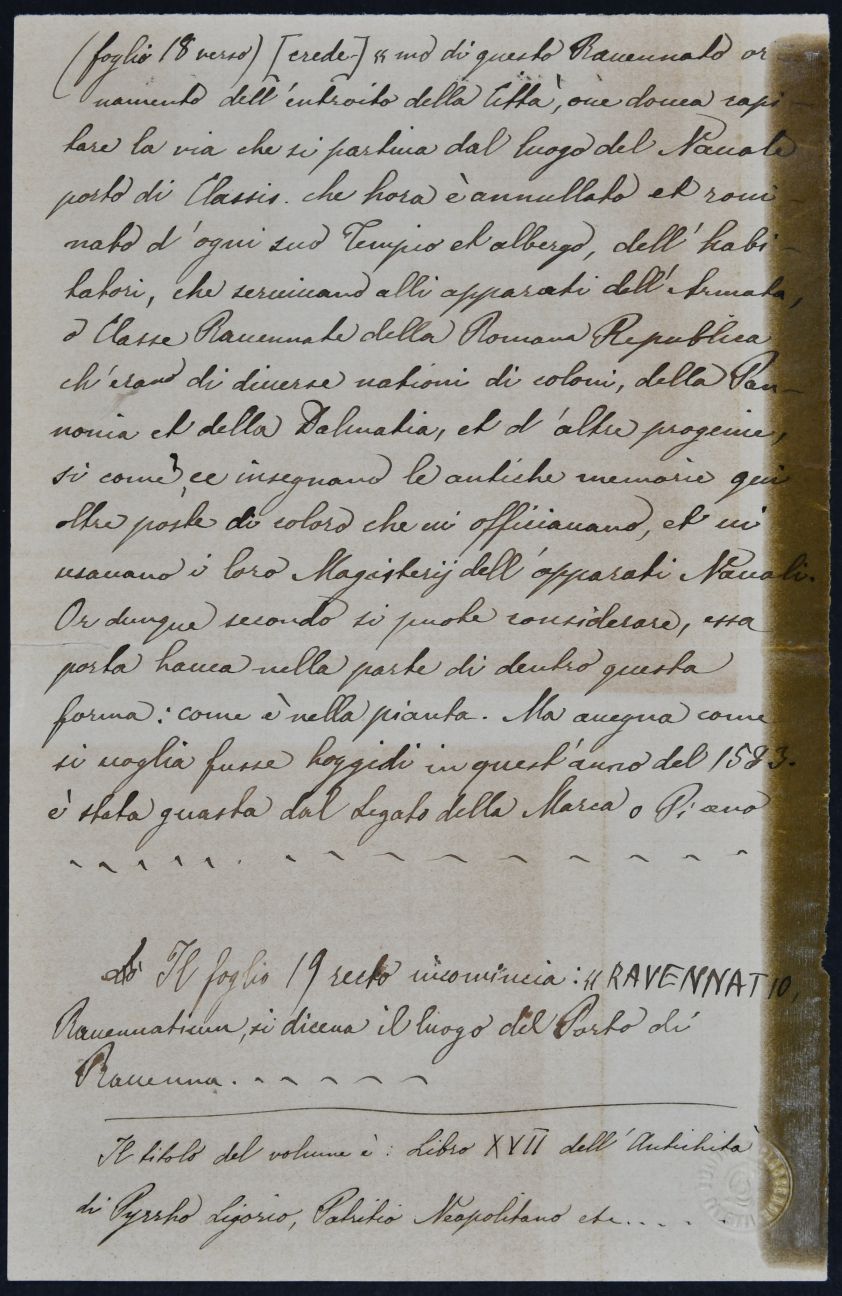 (foglio 18 verso) [crede-] " mo di questo Ravennato or
namento dell'entroito della Città, oue douea capi-
tare la via che si partiua dal luogo del Nauale
porto di Classis. che hora è annullato et roui-
nato d'ogni suo Tempio et albergo, dell'habi-
tatori, che seruiuano alli apparati dell'Armata,
o Classe Rauennate della Romana Republica
ch'erano di diuerse nationi di coloni, della Pan-
nonia et della Dalmatia, et d'altre progenie,
si come ce insegnano le antiche memorie qui
oltre poste di coloro che ui officiauano, et ui
usauano i loro Magisterij dell'apparati Nauali.
Or dunque secondo si puote considerare, essa
porta hauea nella parte di dentro questa
forma: come è nella pianta. Ma auegna come
si uoglia fusse hoggidi in quest'anno del 1583.
è stata guasta dal Legato della Marca o Piceno
Il foglio 19 recto incomincia: " RAVENNATIO,
Rauennatium, si diceua il luogo del Porto di
Rauenna.
Il titolo del volume è: Libro XVII dell'Antichità
di Pyrrho Ligorio, Patritio Neapolitano etc.....